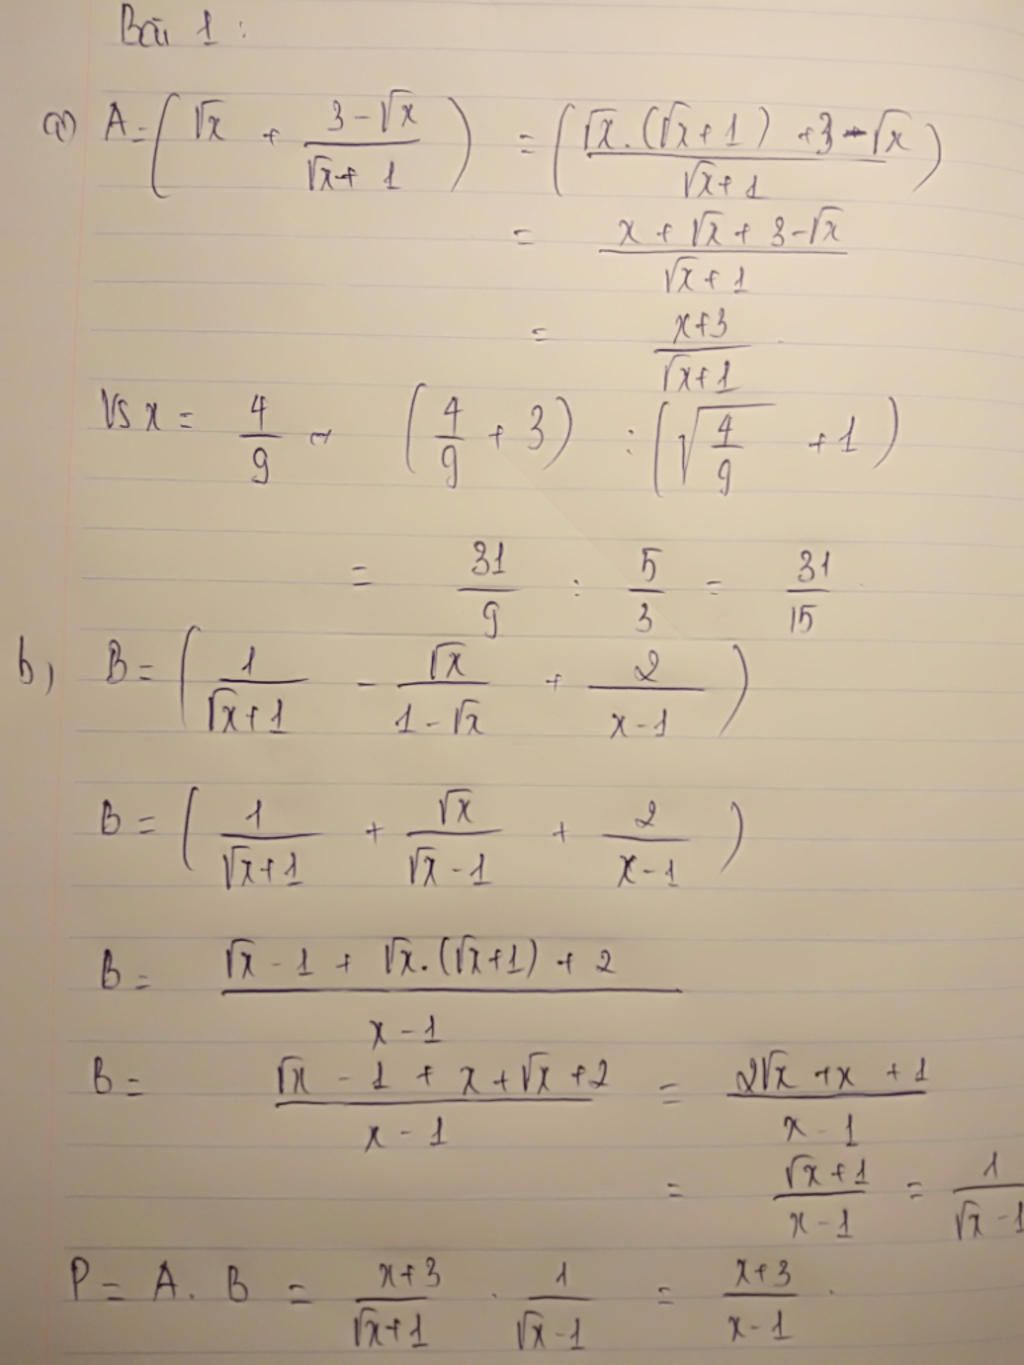 Bài 1:
a) A = (√x + (3-√x)/(√x+1)) = ((√x.(√x+1) +3-√x)/(√x+1))
= (x + √x + 3-√x)/(√x+1)
= (x+3)/(√x+1)
Vs x = 4/9 ~ (4/9 + 3) : (√(4/9) + 1)
= 31/9 : 5/3 = 31/15
b, B = (1/(√x+1) - √x/(1-√x) + 2/(x-1))
B = (1/(√x+1) + √x/(√x-1) + 2/(x-1))
B = (√x - 1 + √x.(√x+1) + 2)/(x-1)
B = (√x - 1 + x + √x + 2)/(x-1) = (2√x + x + 1)/(x-1)
= (√x+1)/(x-1) = 1/(√x-1)
P = A . B = (x+3)/(√x+1) . 1/(√x-1) = (x+3)/(x-1) .